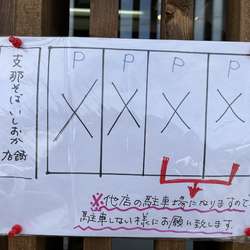 支那そばいしおか
店舗
P P P P
X X X X
※他店の駐車場になりますので
駐車しない様にお願い致します。